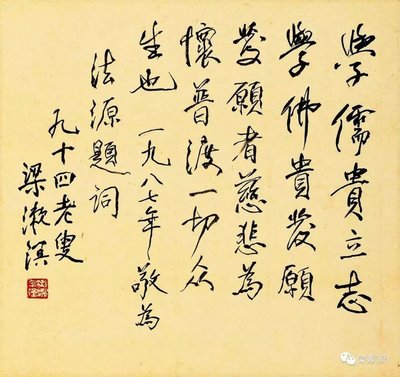 學儒貴立志
學佛貴發願
發願者慈悲為
懷普渡一切众
生也 一九八七年敬為
法源題詞
九十四老叟
梁漱溟